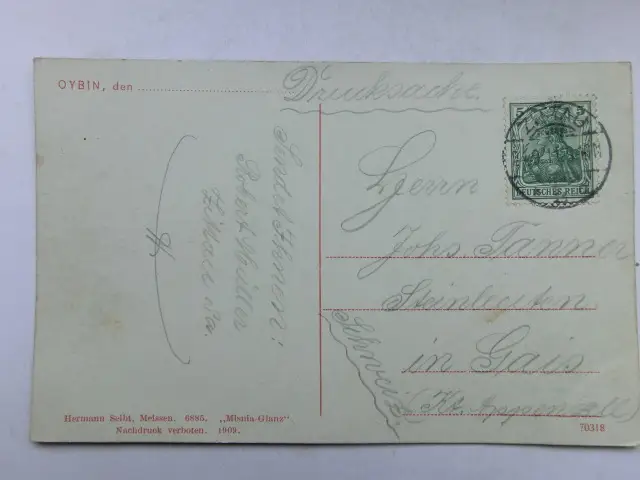 OYBIN, den
Drucksache
5
ZITTAU
DEUTSCHES REICH
Herrn
Johs. Tanner
Steinleuten
in Gais
(Kt. Appenzell)
Schweiz
Sendet Ihnen:
Robert Müller
Zittau i/Sa.
Hermann Seibt, Meissen. 6895. „Misnia-Glanz“
Nachdruck verboten. 1909.
70318